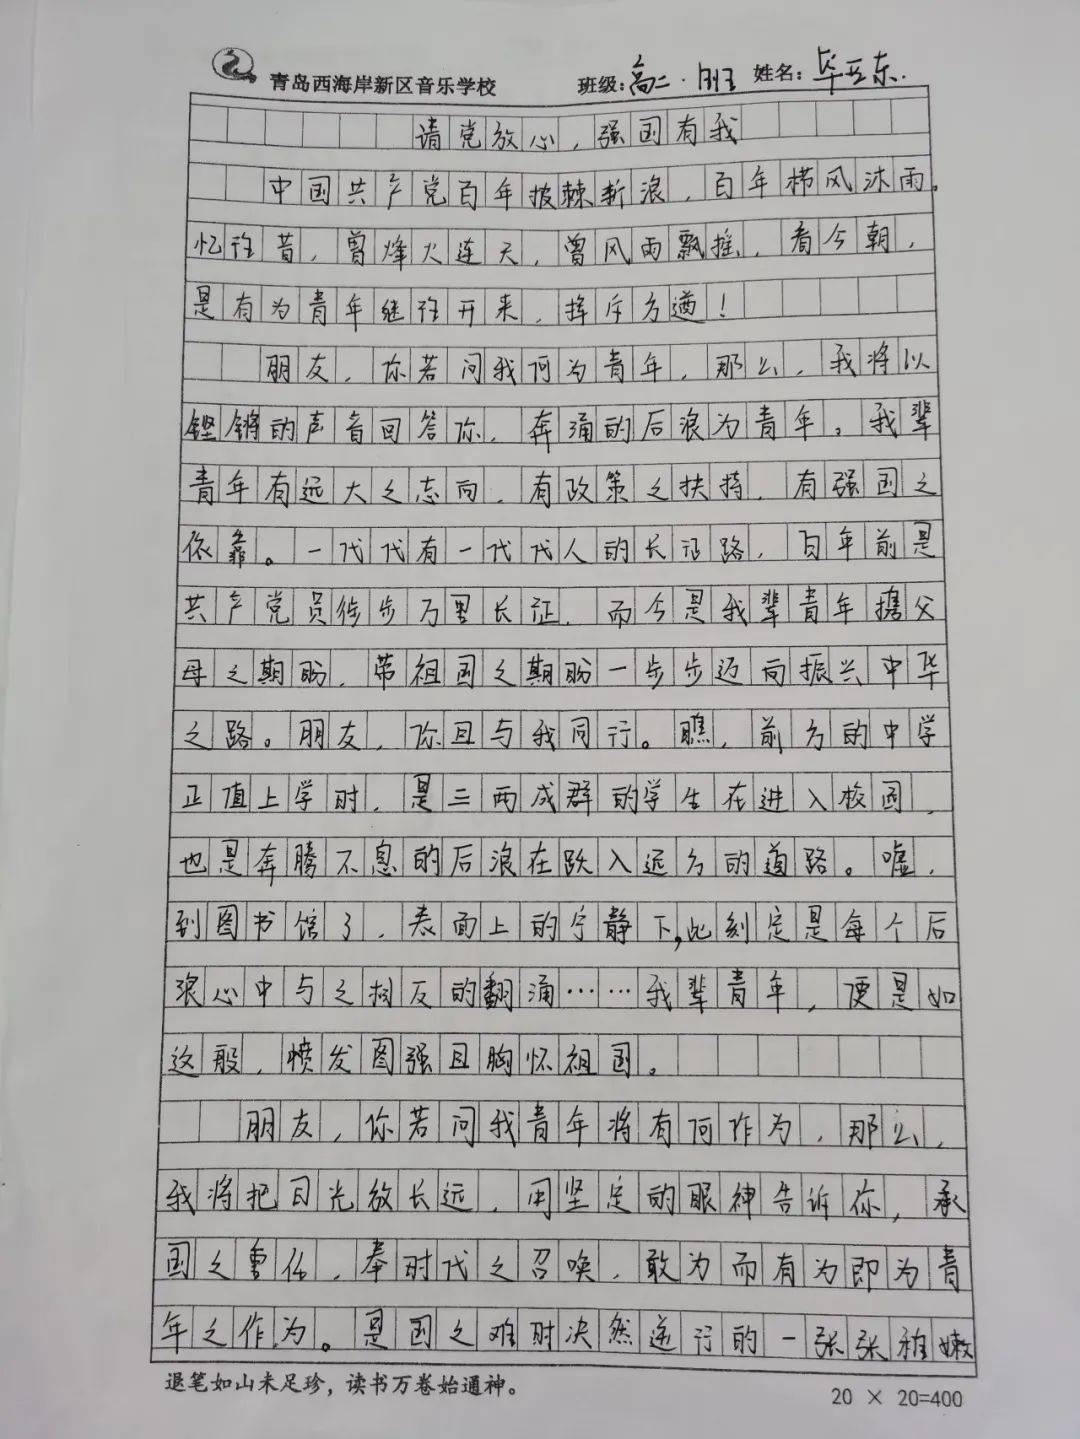 青岛西海岸新区音乐学校 班级:高二·1班 姓名:毕亚东.
请党放心,强国有我
中国共产党百年披棘斩浪,百年栉风沐雨。
忆往昔,曾烽火连天,曾风雨飘摇,看今朝,
是有为青年继往开来,挥斥方遒!
朋友,你若问我何为青年,那么,我将以
铿锵的声音回答你,奔涌的后浪为青年。我辈
青年有远大之志向,有政策之扶持,有强国之
依靠。一代代有一代代人的长征路,百年前是
共产党员徒步万里长征,而今是我辈青年携父
母之期盼,带祖国之期盼一步步迈向振兴中华
之路。朋友,你且与我同行。瞧,前方的中学
正值上学时,是三两成群的学生在进入校园,
也是奔腾不息的后浪在跃入远方的道路。嘘,
到图书馆了,表面上的宁静下,此刻定是每个后
浪心中与之相反的翻涌……我辈青年,便是如
这般,愤发图强且胸怀祖国。
朋友,你若问我青年将有何作为,那么,
我将把目光放长远,用坚定的眼神告诉你,承
国之重任,奉时代之召唤,敢为而有为即为青
年之作为。是国之难时决然逆行的一张张稚嫩
退笔如山未足珍,读书万卷始通神。
20 × 20=400